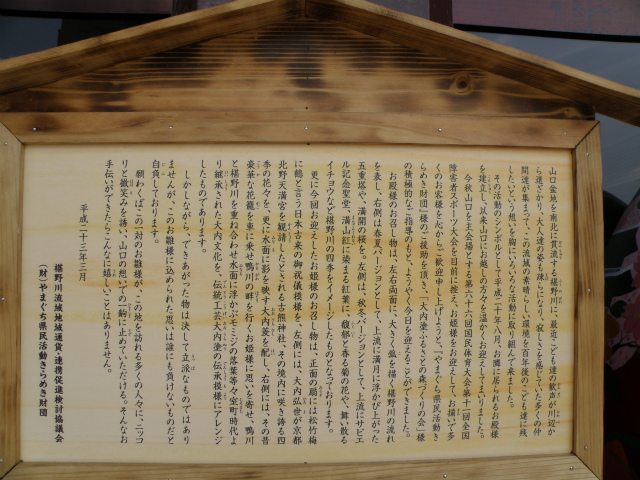 山口盆地を南北に貫流する椹野川に、最近こども達の歓声が川辺か
ら遠ざかり、大人達の姿も疎らになり、寂しさを感じていた多くの仲
間達が集まって、この流域の素晴らしい環境を百年後のこども達に残
したいという想いを胸にいろいろな活動に取り組んで来ました。
その活動のシンボルとして平成二十年八月、お腰に居られるお殿様
を建立し、以来山口にお越しの方々を温かくお迎えしてまいりました。
今秋山口を主会場とする第六十六回国民体育大会第十一回全国
障害者スポーツ大会を目前に控え、お姫様をお迎えして、お揃いで多
くのお客様を心からご歓迎申し上げようと、『やまぐち県民活動き
らめき財団』様のご援助を頂き、『大内塗ふるさとの森づくりの会』様
の積極的なご指導のもと、ようやく今日を迎えることができました。
お殿様のお召し物は、左右両面に、大きく弧を描く椹野川の流れ
を表し、右側は春夏バージョンとして、上流に満月に浮かび上がった
五重塔や、満開の桜を。左側は、秋冬バージョンとして、上流にサビエ
ル記念聖堂、満山紅に染まる紅葉に、馥郁と香る菊の花や、舞い散る
イチョウなど椹野川の四季をイメージしたものとなっております。
更に今回お迎えしたお姫様のお召し物は、正面の扇には松竹梅
に鶴と言う日本古来の御祝儀模様を、左側には、大内弘世が京都
北野天満宮を観請したとされる古熊神社、その境内に咲き誇る四
季の花々を、更に水面に影を映す大内菱を配し、右側には、その昔
豪華な花籠を車に乗せ鴨川の畔を行くお姫様に思いを寄せ、鴨川
と椹野川を重ね合わせ水面に浮かぶモミジの落葉等々室町時代よ
り継承された大内文化を、伝統工芸大内塗の伝承模様にアレンジ
したものであります。
しかしながら、できあがった物は決して立派なものではあり
ませんが、このお雛様に込められた思いは誰にも負けないものだと
自負しております。
願わくばこの一対のお雛様が、この地を訪れる多くの人々に、ニッコ
リと微笑みを誘い、山口の想いでの一齣に止めていただける。そんなお
手伝いができたらこんなに嬉しいことはありません。
平成二十三年三月
椹野川流域地域通貨・連携促進検討協議会
(財)やまぐち県民活動きらめき財団